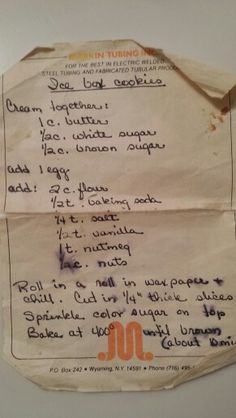 MARKIN TUBING INC.
FOR THE BEST IN ELECTRIC WELDED
STEEL TUBING AND FABRICATED TUBULAR PRODU
Ice box cookies
Cream together:
1 c. butter
1/2 c. white sugar
1/2 c. brown sugar
add 1 egg
add: 2 c. flour
1/2 t. baking soda
1/4 t. salt
1/2 t. vanilla
1 t. nutmeg
1/2 c. nuts
Roll in a roll in wax paper +
chill. Cut in 1/4" thick slices
Sprinkle color sugar on top
Bake at 400° until brown
(about 10 min
P.O. Box 242 • Wyoming, N.Y. 14591 • Phone (716) 495-